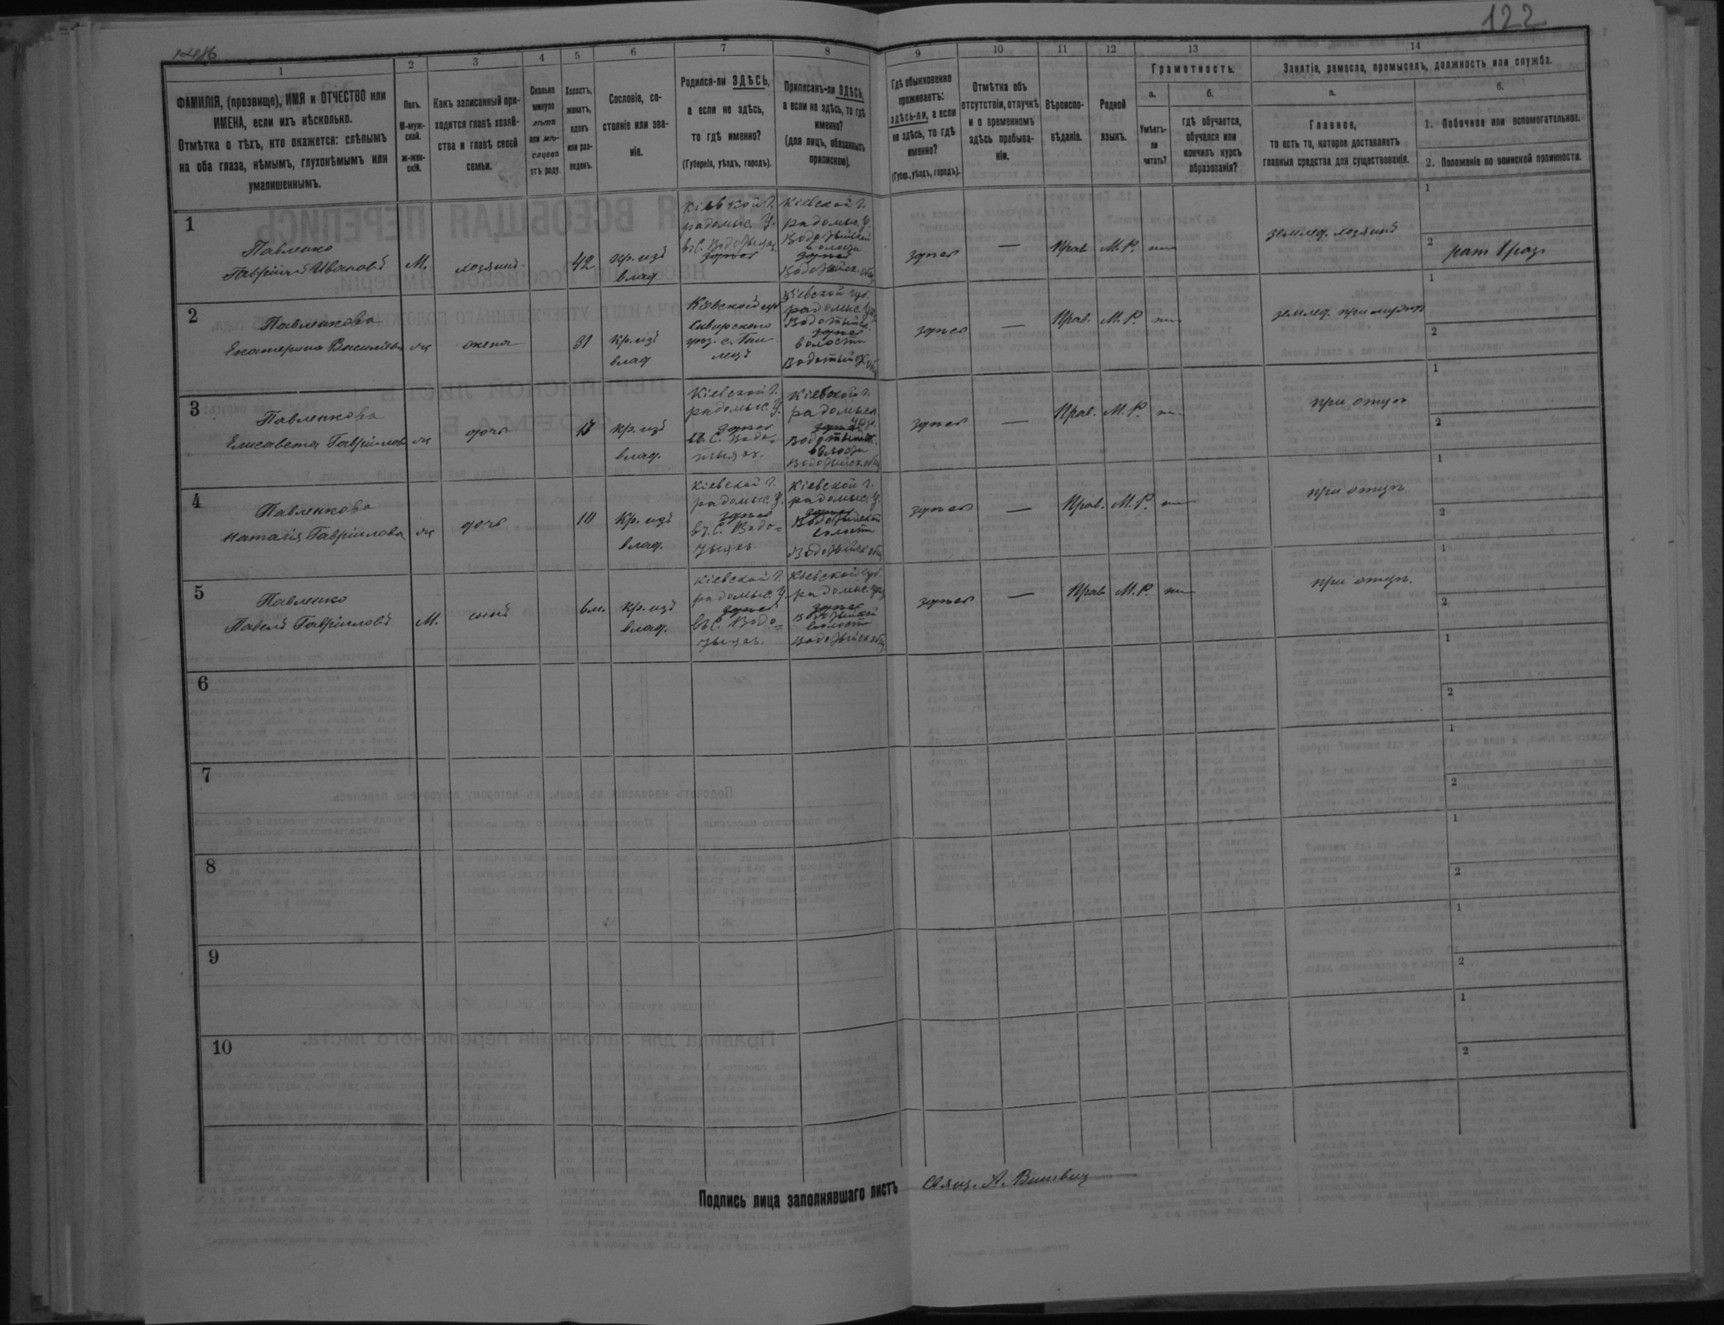 122
1
2
3
4
5
6
7
8
9
10
11
12
13
14
ФАМИЛІЯ, (прозвище), ИМЯ и ОТЧЕСТВО или
ИМЕНА, если ихъ нѣсколько.
Отмѣтка о тѣхъ, кто окажется: слѣпымъ
на оба глаза, нѣмымъ, глухонѣмымъ или
умалишеннымъ.
Полъ.
М-муж-
ской.
Ж-жен-
скій.
Какъ записанный при-
ходится главѣ хозяй-
ства и главѣ своей
семьи.
Сколько
минуло
лѣтъ
или мѣ-
сяцевъ
отъ роду.
Холостъ,
женатъ,
вдовъ
или раз-
веденъ.
Сословіе, со-
стояніе или зва-
ніе.
Родился-ли ЗДѢСЬ,
а если не здѣсь,
то гдѣ именно?
(Губернія, уѣздъ, городъ).
Приписанъ-ли ЗДѢСЬ,
а если не здѣсь, то гдѣ
именно?
(для лицъ, обязанныхъ
припискою).
Гдѣ обыкновенно
проживаетъ:
здѣсь-ли, а если
не здѣсь, то гдѣ
именно?
(Губер., уѣздъ, городъ).
Отмѣтка объ
отсутствіи, отлучкѣ
и о временномъ
здѣсь пребыва-
ніи.
Вѣроиспо-
вѣданіе.
Родной
языкъ.
Грамотность.
а.
Умѣетъ-
ли
читать?
б.
гдѣ обучается,
обучался или
кончилъ курсъ
образованія?
Занятіе, ремесло, промыселъ, должность или служба.
а.
Главное,
то есть то, которое доставляетъ
главныя средства для существованія.
б.
1. Побочное или вспомогательное.
2. Положеніе по воинской повинности.
1
Павленко
Гавріилъ Ивановъ
М.
хозяинъ
42
кр. изъ
влад
Кіевской г.
радомыс. у.
въ с. Водотыяхъ
здѣсь
Кіевской г.
радомыс у.
Водотыйской
волости
здѣсь
Водотыйск. общ
здѣсь
—
Прав.
М. Р.
землед. хозяинъ
1
2
2
Павленкова
Екатерина Васильева
ж
жена
31
кр. изъ
влад
Кіевской губ
Сквирского
уѣз. с.
Кіевской губ.
радомыс. уѣз
здѣсь
волости
Водотыйск. общ
здѣсь
—
Прав.
М. Р.
землед. при мужѣ
1
2
3
Павленкова
Елисавета Гавріилова
ж
дочь
кр. изъ
влад.
Кіевской г.
радомыс. у.
здѣсь
въ с. Водо-
тыяхъ.
Кіевской г.
здѣсь
волости
Водотыйск. общ
здѣсь
—
Прав.
М. Р.
при отцѣ
1
2
4
Павленкова
Наталія Гавріилова
ж
дочь
10
Кр. изъ
влад.
Кіевской г.
радомыс. у.
здѣсь
въ с. Водо-
тыяхъ.
Кіевской г.
радомыс. у.
здѣсь
Водотыйской
волости
Водотыйск. общ
здѣсь
—
Прав.
М. Р.
при отцѣ
1
2
5
Павленко
Павелъ Гавріиловъ
М.
сынъ
кр. изъ
влад.
Кіевской г.
радомыс. у.
здѣсь
въ с. Водо-
тыяхъ.
Кіевской губ.
радомыс. уѣз
здѣсь
Водотыйской
волости
Водотыйск. общ
здѣсь
—
Прав
М. Р.
при отцѣ.
1
2
6
1
2
7
1
2
8
1
2
9
1
2
10
1
2
Подпись лица заполнявшаго листъ
Свящ. А.